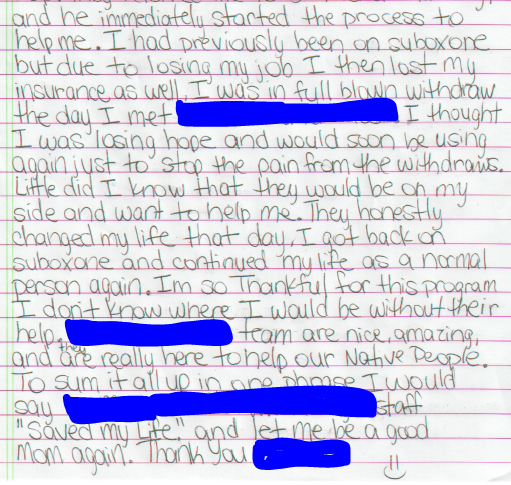 and he immediately started the process to
help me. I had previously been on suboxone
but due to losing my job I then lost my
insurance as well. I was in full blown withdraw
the day I met I thought
I was losing hope and would soon be using
again just to stop the pain from the withdraws.
Little did I know that they would be on my
side and want to help me. They honestly
changed my life that day. I got back on
suboxone and continued my life as a normal
person again. Im so Thankful for this program
I don't know where I would be without their
help. team are nice, amazing,
and they are really here to help our Native People.
To sum it all up in one phrase I would
say staff
"Saved my Life." and let me be a good
Mom again. Thank you